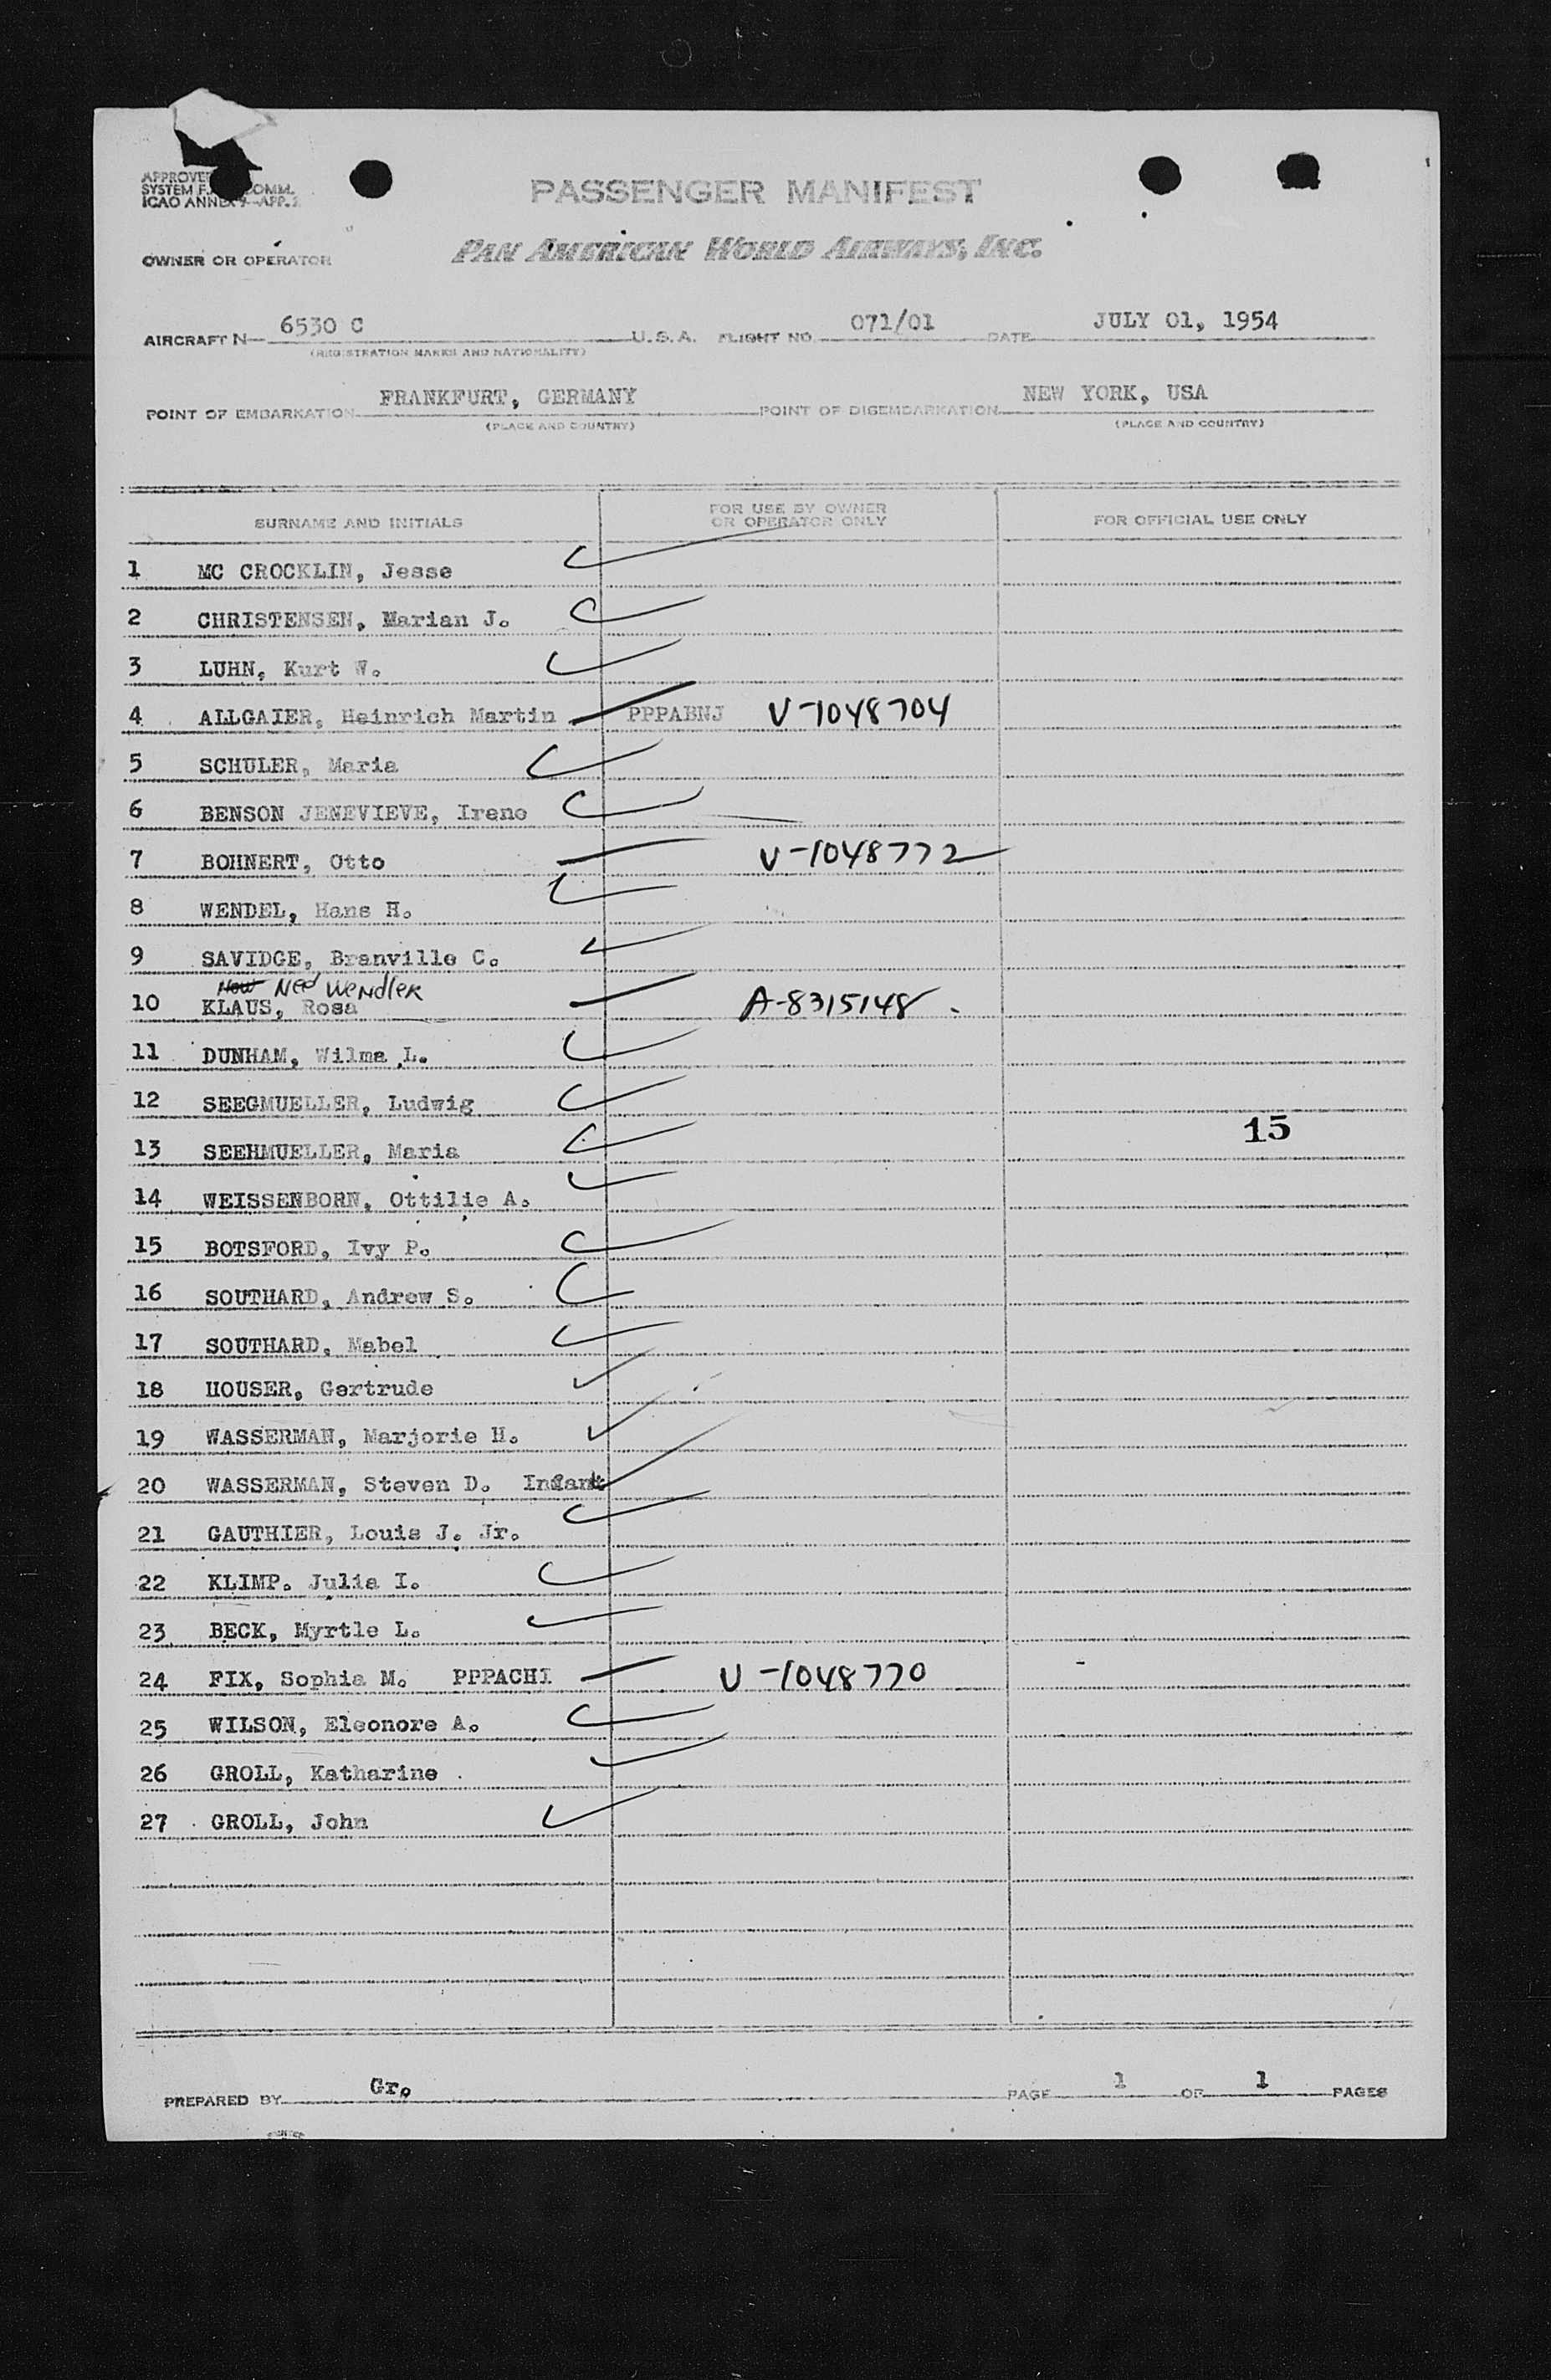 APPROVE
SYSTEM F. COMM.
ICAO ANNEX 9-APP.
PASSENGER MANIFEST
OWNER OR OPERATOR PAN AMERICAN WORLD AIRWAYS, INC.
AIRCRAFT N- 6530 C U.S.A. FLIGHT NO. 071/01 DATE JULY 01, 1954
(REGISTRATION MARKS AND NATIONALITY)
POINT OF EMBARKATION FRANKFURT, GERMANY POINT OF DISEMBARKATION NEW YORK, USA
(PLACE AND COUNTRY) (PLACE AND COUNTRY)
SURNAME AND INITIALS FOR USE BY OWNER OR OPERATOR ONLY FOR OFFICIAL USE ONLY
1 MC CROCKLIN, Jesse
2 CHRISTENSEN, Marian J.
3 LUHN, Kurt W.
4 ALLGAIER, Heinrich Martin PPPABNJ V-1048704
5 SCHULER, Maria
6 BENSON JENEVIEVE, Irene
7 BOHNERT, Otto V-1048772
8 WENDEL, Hans H.
9 SAVIDGE, Branville C.
Now Neé Wendler
10 KLAUS, Rosa A-8315148
11 DUNHAM, Wilma L.
12 SEEGMUELLER, Ludwig
13 SEEHMUELLER, Maria 15
14 WEISSENBORN, Ottilie A.
15 BOTSFORD, Ivy P.
16 SOUTHARD, Andrew S.
17 SOUTHARD, Mabel
18 HOUSER, Gertrude
19 WASSERMAN, Marjorie H.
20 WASSERMAN, Steven D. Infant
21 GAUTHIER, Louis J. Jr.
22 KLIMP. Julia I.
23 BECK, Myrtle L.
24 FIX, Sophia M. PPPACHI V-1048770
25 WILSON, Eleonore A.
26 GROLL, Katharine
27 GROLL, John
PREPARED BY Gr. PAGE 1 OF 1 PAGES